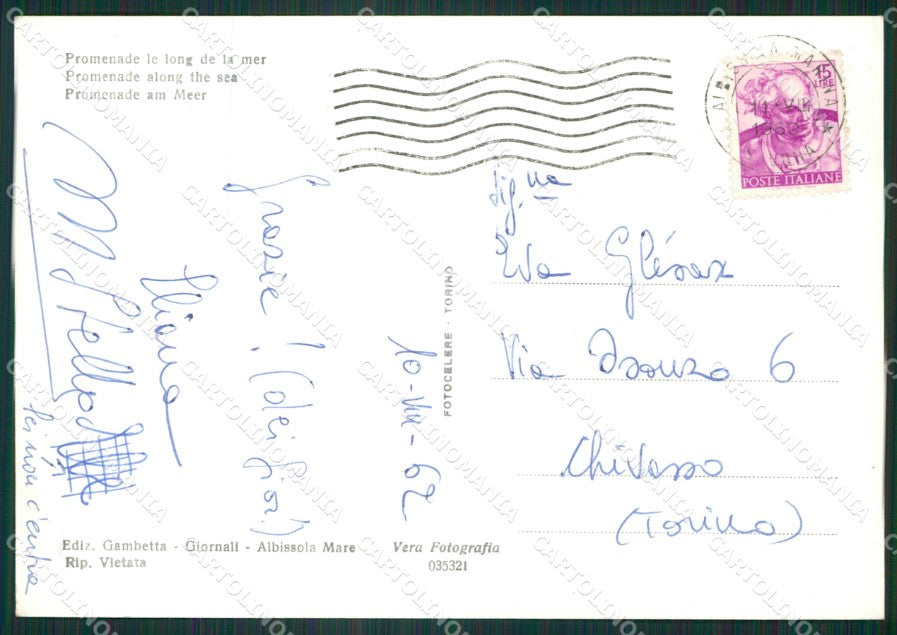 Promenade le long de la mer
Promenade along the sea
Promenade am Meer
15
LIRE
POSTE ITALIANE
10-VII-62
Grazie! (dei fiori)
Eliana
lei non c'entra
Sig.na
Eva
Via Isonzo 6
Chivasso
(Torino)
FOTOCELERE - TORINO
Ediz. Gambetta - Giornali - Albissola Mare
Rip. Vietata
Vera Fotografia
035321
CARTOLINOMANIA